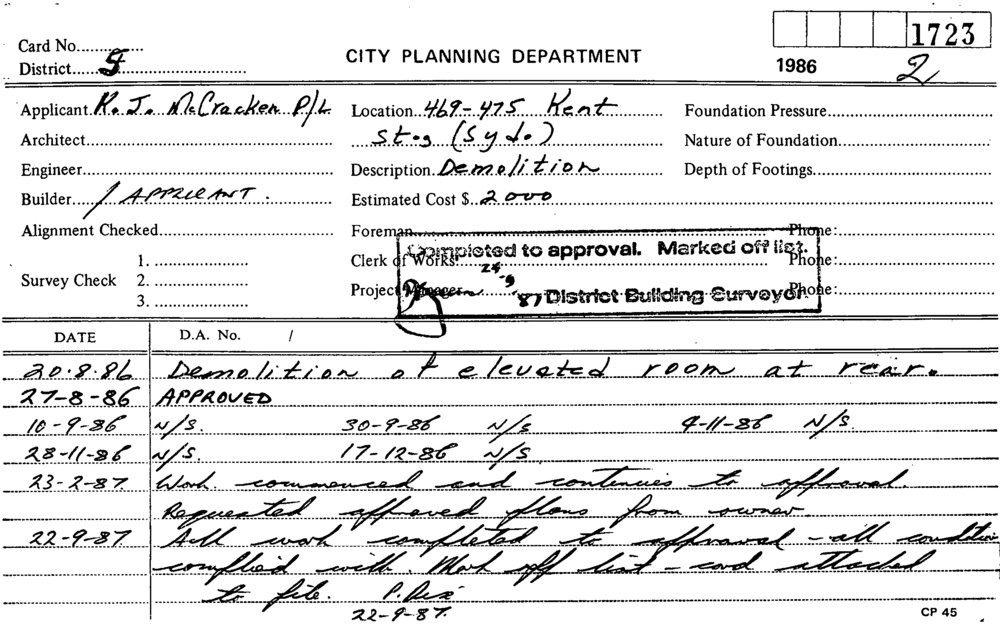 1723
Card No.
District 5
CITY PLANNING DEPARTMENT
1986
2
Applicant R.J. McCracken P/L
Location 469-475 Kent
Foundation Pressure
Architect
St., (Syd.)
Nature of Foundation
Engineer
Description Demolition
Depth of Footings
Builder / APPLICANT.
Estimated Cost $ 2000
Alignment Checked
Foreman
Phone:
Completed to approval. Marked off list.
Survey Check
1.
2.
3.
Clerk of Works:
Phone:
24-9-87
Project Manager
Phone:
District Building Surveyor
DATE
D.A. No. /
20.8.86 Demolition of elevated room at rear.
27-8-86 APPROVED
10-9-86 N/S. 30-9-86 N/S 4-11-86 N/S
28-11-86 N/S. 17-12-86 N/S
23-2-87 Work commenced and continues to approval.
Requested approved plans from owner.
22-9-87 All work completed to approval - all condition
complied with. Mark off list - card attached
to file.
22-9-87.
CP 45